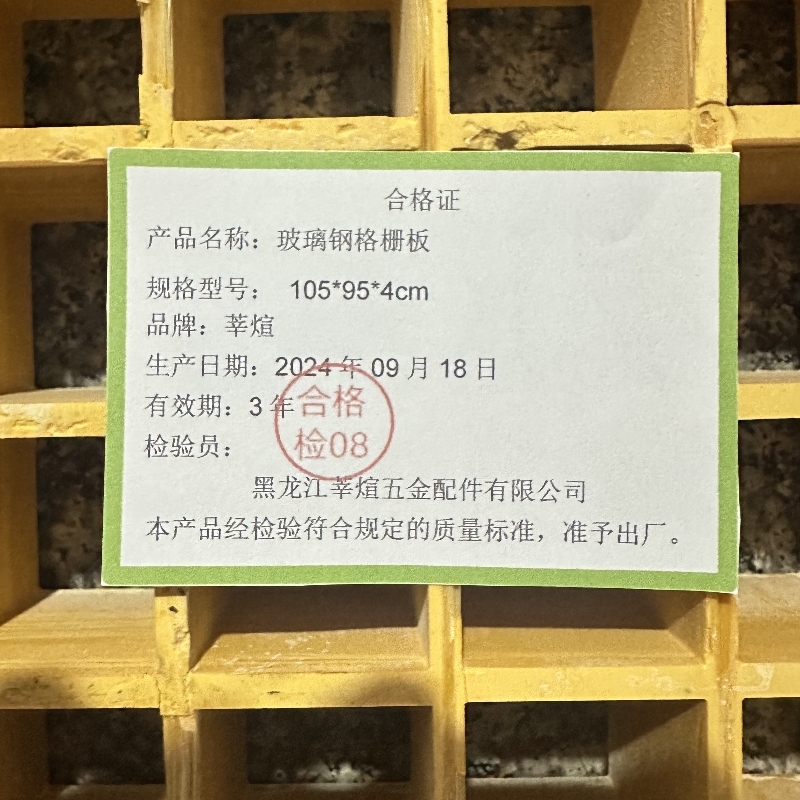 合格证
产品名称：玻璃钢格栅板
规格型号： 105*95*4cm
品牌：莘煊
生产日期：2024 年 09 月 18 日
有效期：3 年
合格
检验员：
检08
黑龙江莘煊五金配件有限公司
本产品经检验符合规定的质量标准，准予出厂。